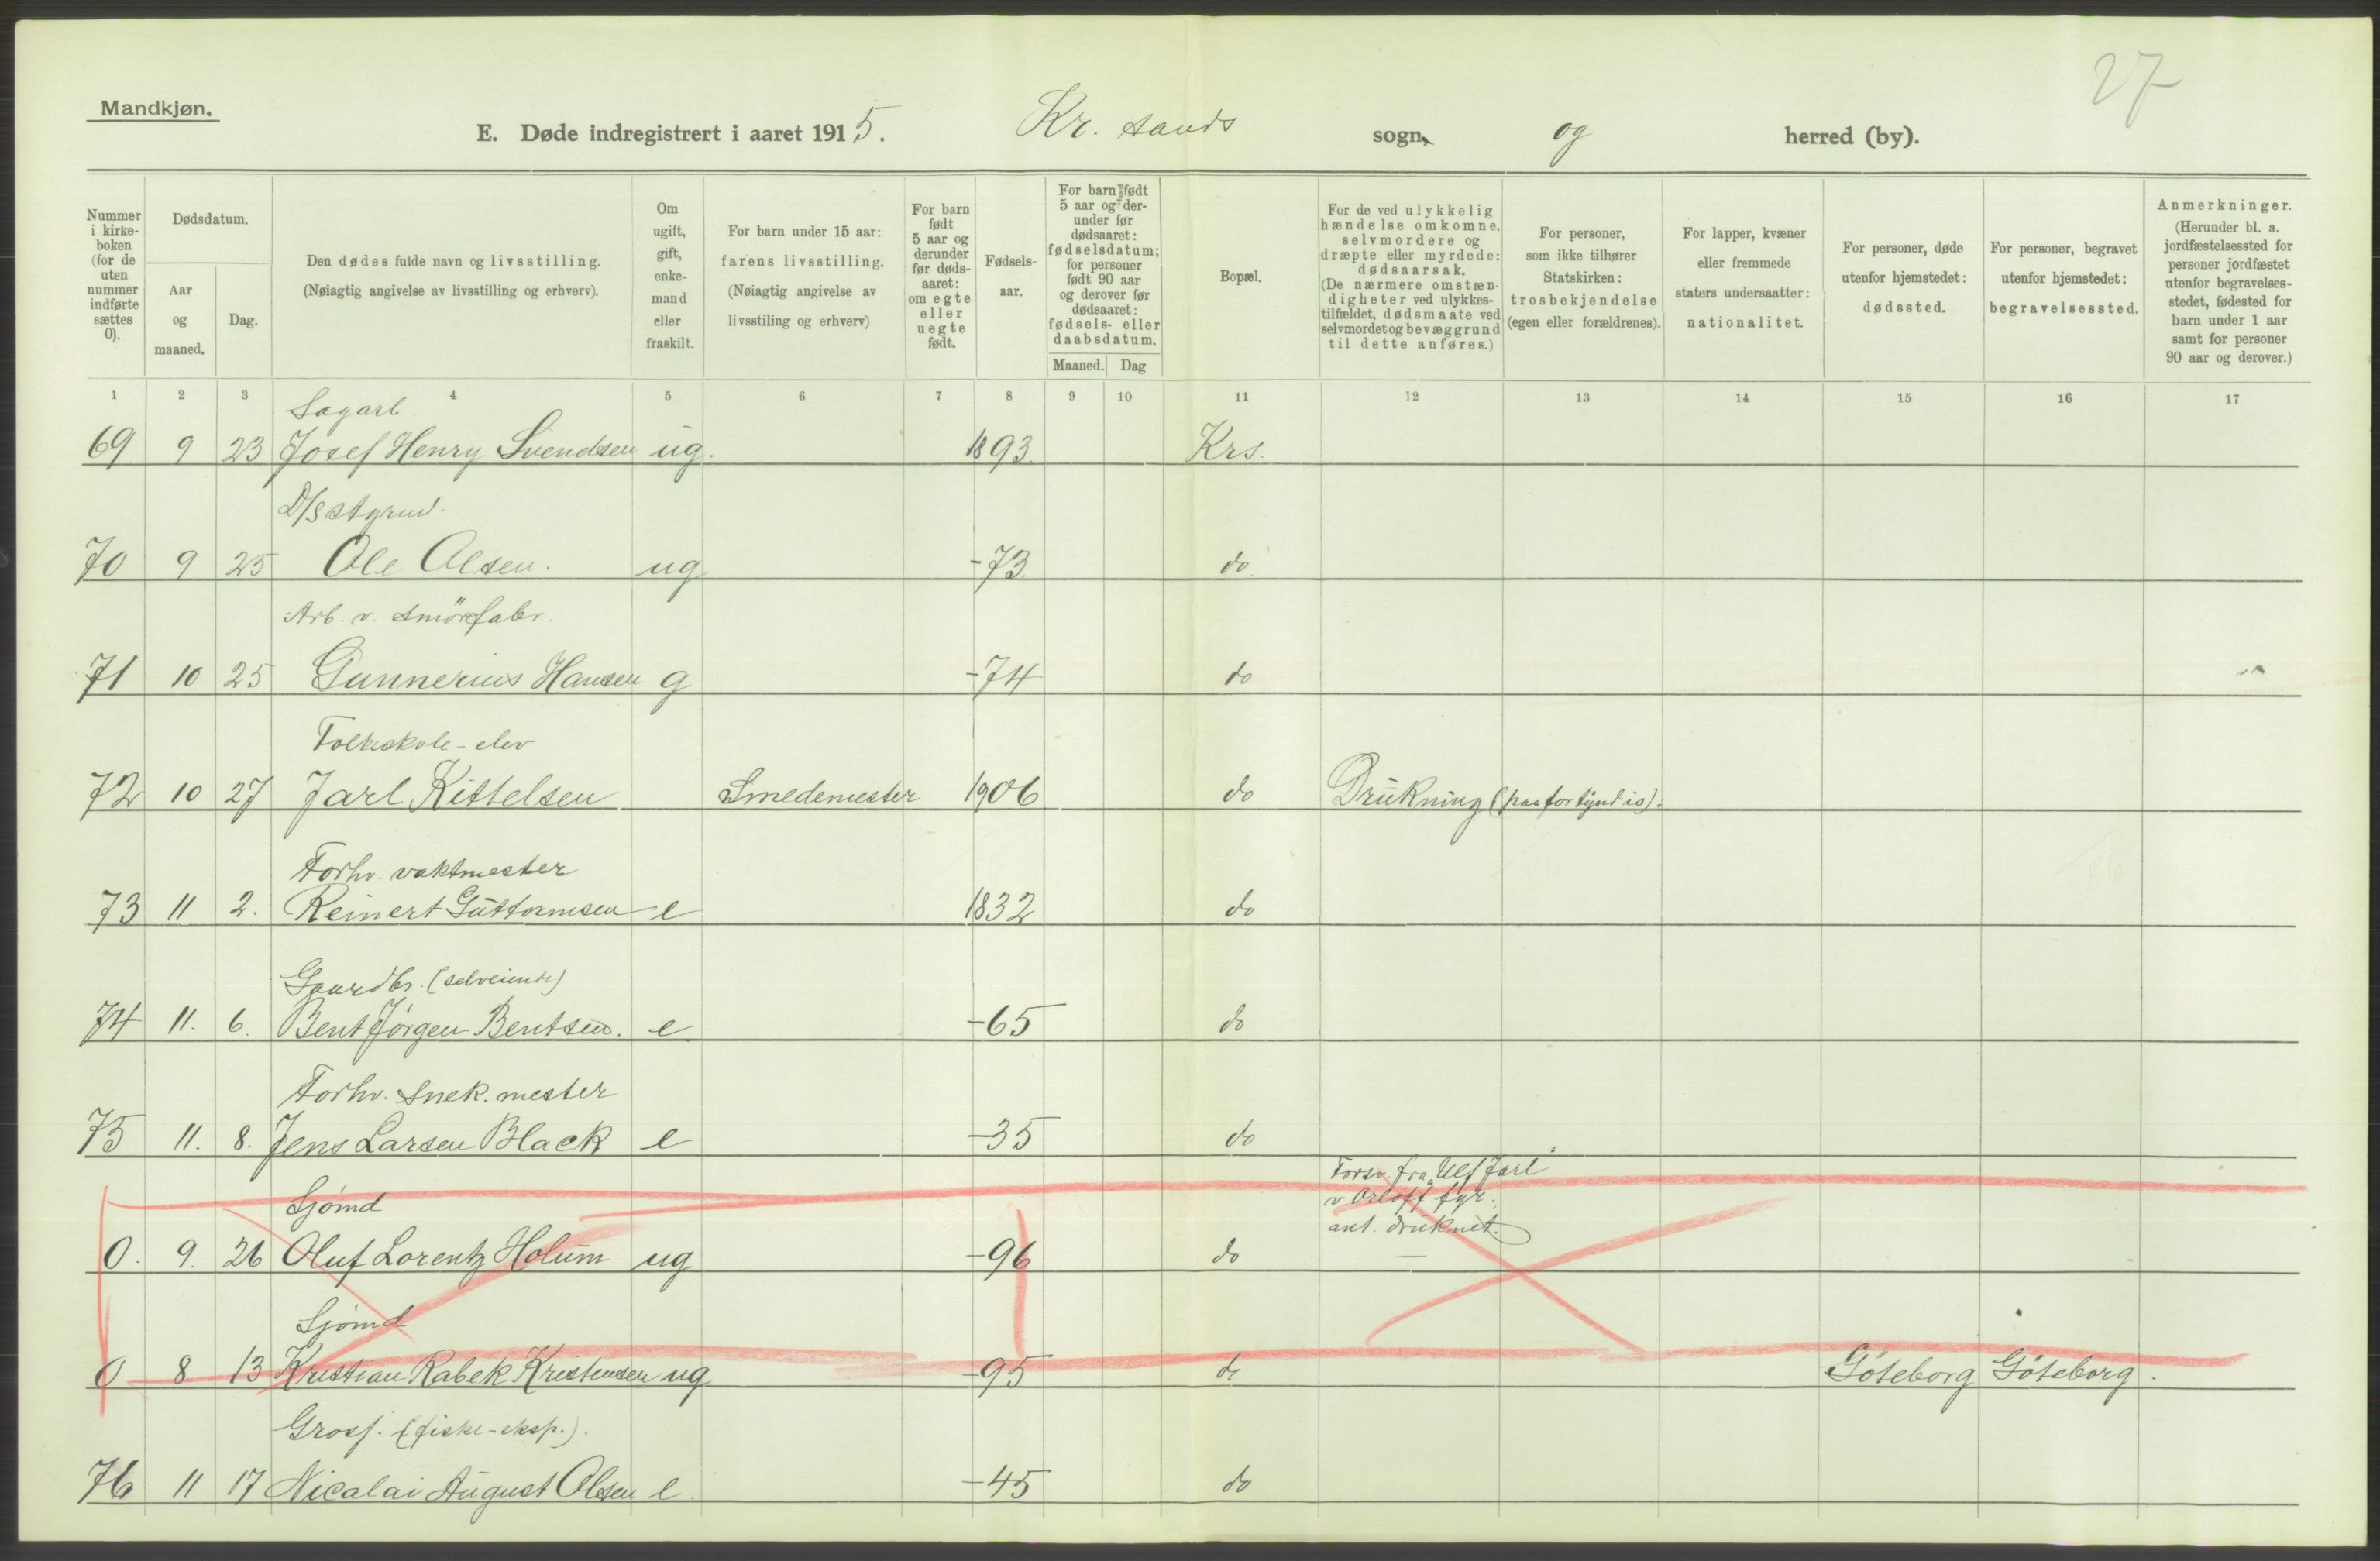 27
Mandkjøn.
E. Døde indregistrert i aaret 1915. Kr. sands sogn, og herred (by).
Nummer i kirke-boken (for de uten nummer indførte sættes 0).
Dødsdatum.
Aar og maaned.
Dag.
Den dødes fulde navn og livsstilling.
(Nøiagtig angivelse av livsstilling og erhverv).
Om ugift, gift, enke-mand eller fraskilt.
For barn under 15 aar: farens livsstilling.
(Nøiagtig angivelse av livsstiling og erhverv)
For barn født 5 aar og derunder før døds-aaret: om egte eller uegte født.
Fødsels-aar.
For barn født 5 aar og der-under før dødsaaret: fødselsdatum; for personer født 90 aar og derover før dødsaaret: fødsels- eller daabsdatum.
Maaned. Dag
Bopæl.
For de ved ulykkelig hændelse omkomne, selvmordere og dræpte eller myrdede: dødsaarsak.
(De nærmere omstæn-digheter ved ulykkes-tilfældet, dødsmaate ved selvmordet og bevæggrund til dette anføres.)
For personer, som ikke tilhører Statskirken: trosbekjendelse (egen eller forældrenes).
For lapper, kvæner eller fremmede staters undersaatter: nationalitet.
For personer, døde utenfor hjemstedet: dødssted.
For personer, begravet utenfor hjemstedet: begravelsessted.
Anmerkninger.
(Herunder bl. a. jordfæstelsessted for personer jordfæstet utenfor begravelses-stedet, fødested for barn under 1 aar samt for personer 90 aar og derover.)
1 2 3 4 5 6 7 8 9 10 11 12 13 14 15 16 17
Sagarb.
69 9 23 Josef Henry Svendsen ug. 1893. Krs.
D/S styrm.
70 9 25 Ole Olsen. ug -73 do
Arb. v. smörfabr.
71 10 25 Gunnerius Hansen g -74 do
Folkeskole-elev
72 10 27 Jarl Kittelsen Smedemester 1906 do Drukning (paa fortynd is).
Forhv. vaktmester
73 11 2. Reinert Guttormsen e 1832 do
Gaardbr. (selveiende)
74 11. 6. Bent Jörgen Bentsen. e -65 do
Forhv. Snek. mester
75 11. 8. Jens Larsen Black e -35 do
Forsv. fra „Ulf Jarl"
Sjömd v. Orloff fyr.
ant. druknet.
0. 9. 26 Oluf Lorentz Holum ug -96 do
Sjömd
0 8 13 Kristian Rabek Kristensen ug -95 do Göteborg Göteborg.
Grosf. (fiske-eksp.).
76 11 17 Nicolai August Olsen e. -45 do